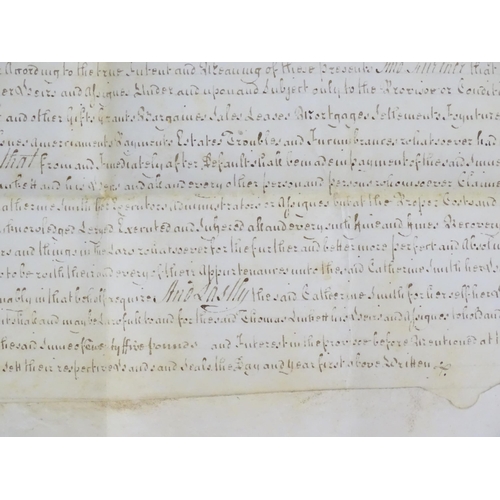 According to the true Intent and Meaning of these presents And further that
Heirs and Assignes Under and upon and Subject only to the Proviso or Condit
and other Gifts Grants Bargaines Sales Leases Mortgages Settlements Joynture
Amerciaments Payments Estates Troubles and Incumbrances whatsoever had
that from and Immediately after Default shall be made in payment of the said Summe
and his Heires and all and every other person and persons whatsoever Claim
Catherine Smith her Executors Administrators or Assignes but at the Proper Costs and
Acknowledged Levyed Executed and Suffered all and every such Fine and Fines Recovery
and things in the Law whatsoever for the further and better more perfect and absolut
to be with their and every of their Appurtenances unto the said Catherine Smith her
in that behalf require And Lastly the said Catherine Smith for her self her
shall and may be lawfull to and for the said Thomas his Heirs and Assignes to hold and
the said Summe of Twenty five pounds and Interest in the proviso before Mentioned at th
sett their respective hands and Seals the Day and Year first above Written